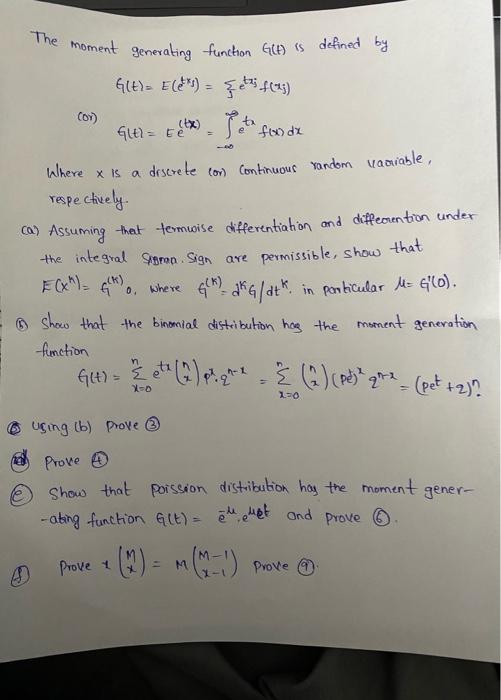 The moment generating function G(t) is defined by
G(t) = E(e^{txj}) = Σ_j e^{txj} f(xj)
(or)
G(t) = E e^{(tx)} = ∫_{-∞}^{∞} e^{tx} f(x) dx
Where x is a discrete (or) Continuous random vaariable,
respectively.
(a) Assuming that termwise differentiation and differention under
the integral Sign are permissible, show that
E(x^k) = G^{(k)}0, where G^{(k)} = d^kG/dt^k. in particular μ = G'(0).
(b) Show that the binomial distribution has the moment generation
function
G(t) = Σ_{x=0}^{n} e^{tx} (n x) p^x. q^{n-x} = Σ_{x=0}^{n} (n x) (pe^t)^x q^{n-x} = (pe^t + q)^n
using (b) prove ③
Prove ④
(e) Show that poission distribution has the moment gener-
-ating function G(t) = e^{-μ}. e^{μet} and prove ⑥.
(f) Prove x (M x) = M (M-1 x-1) Prove ⑨.